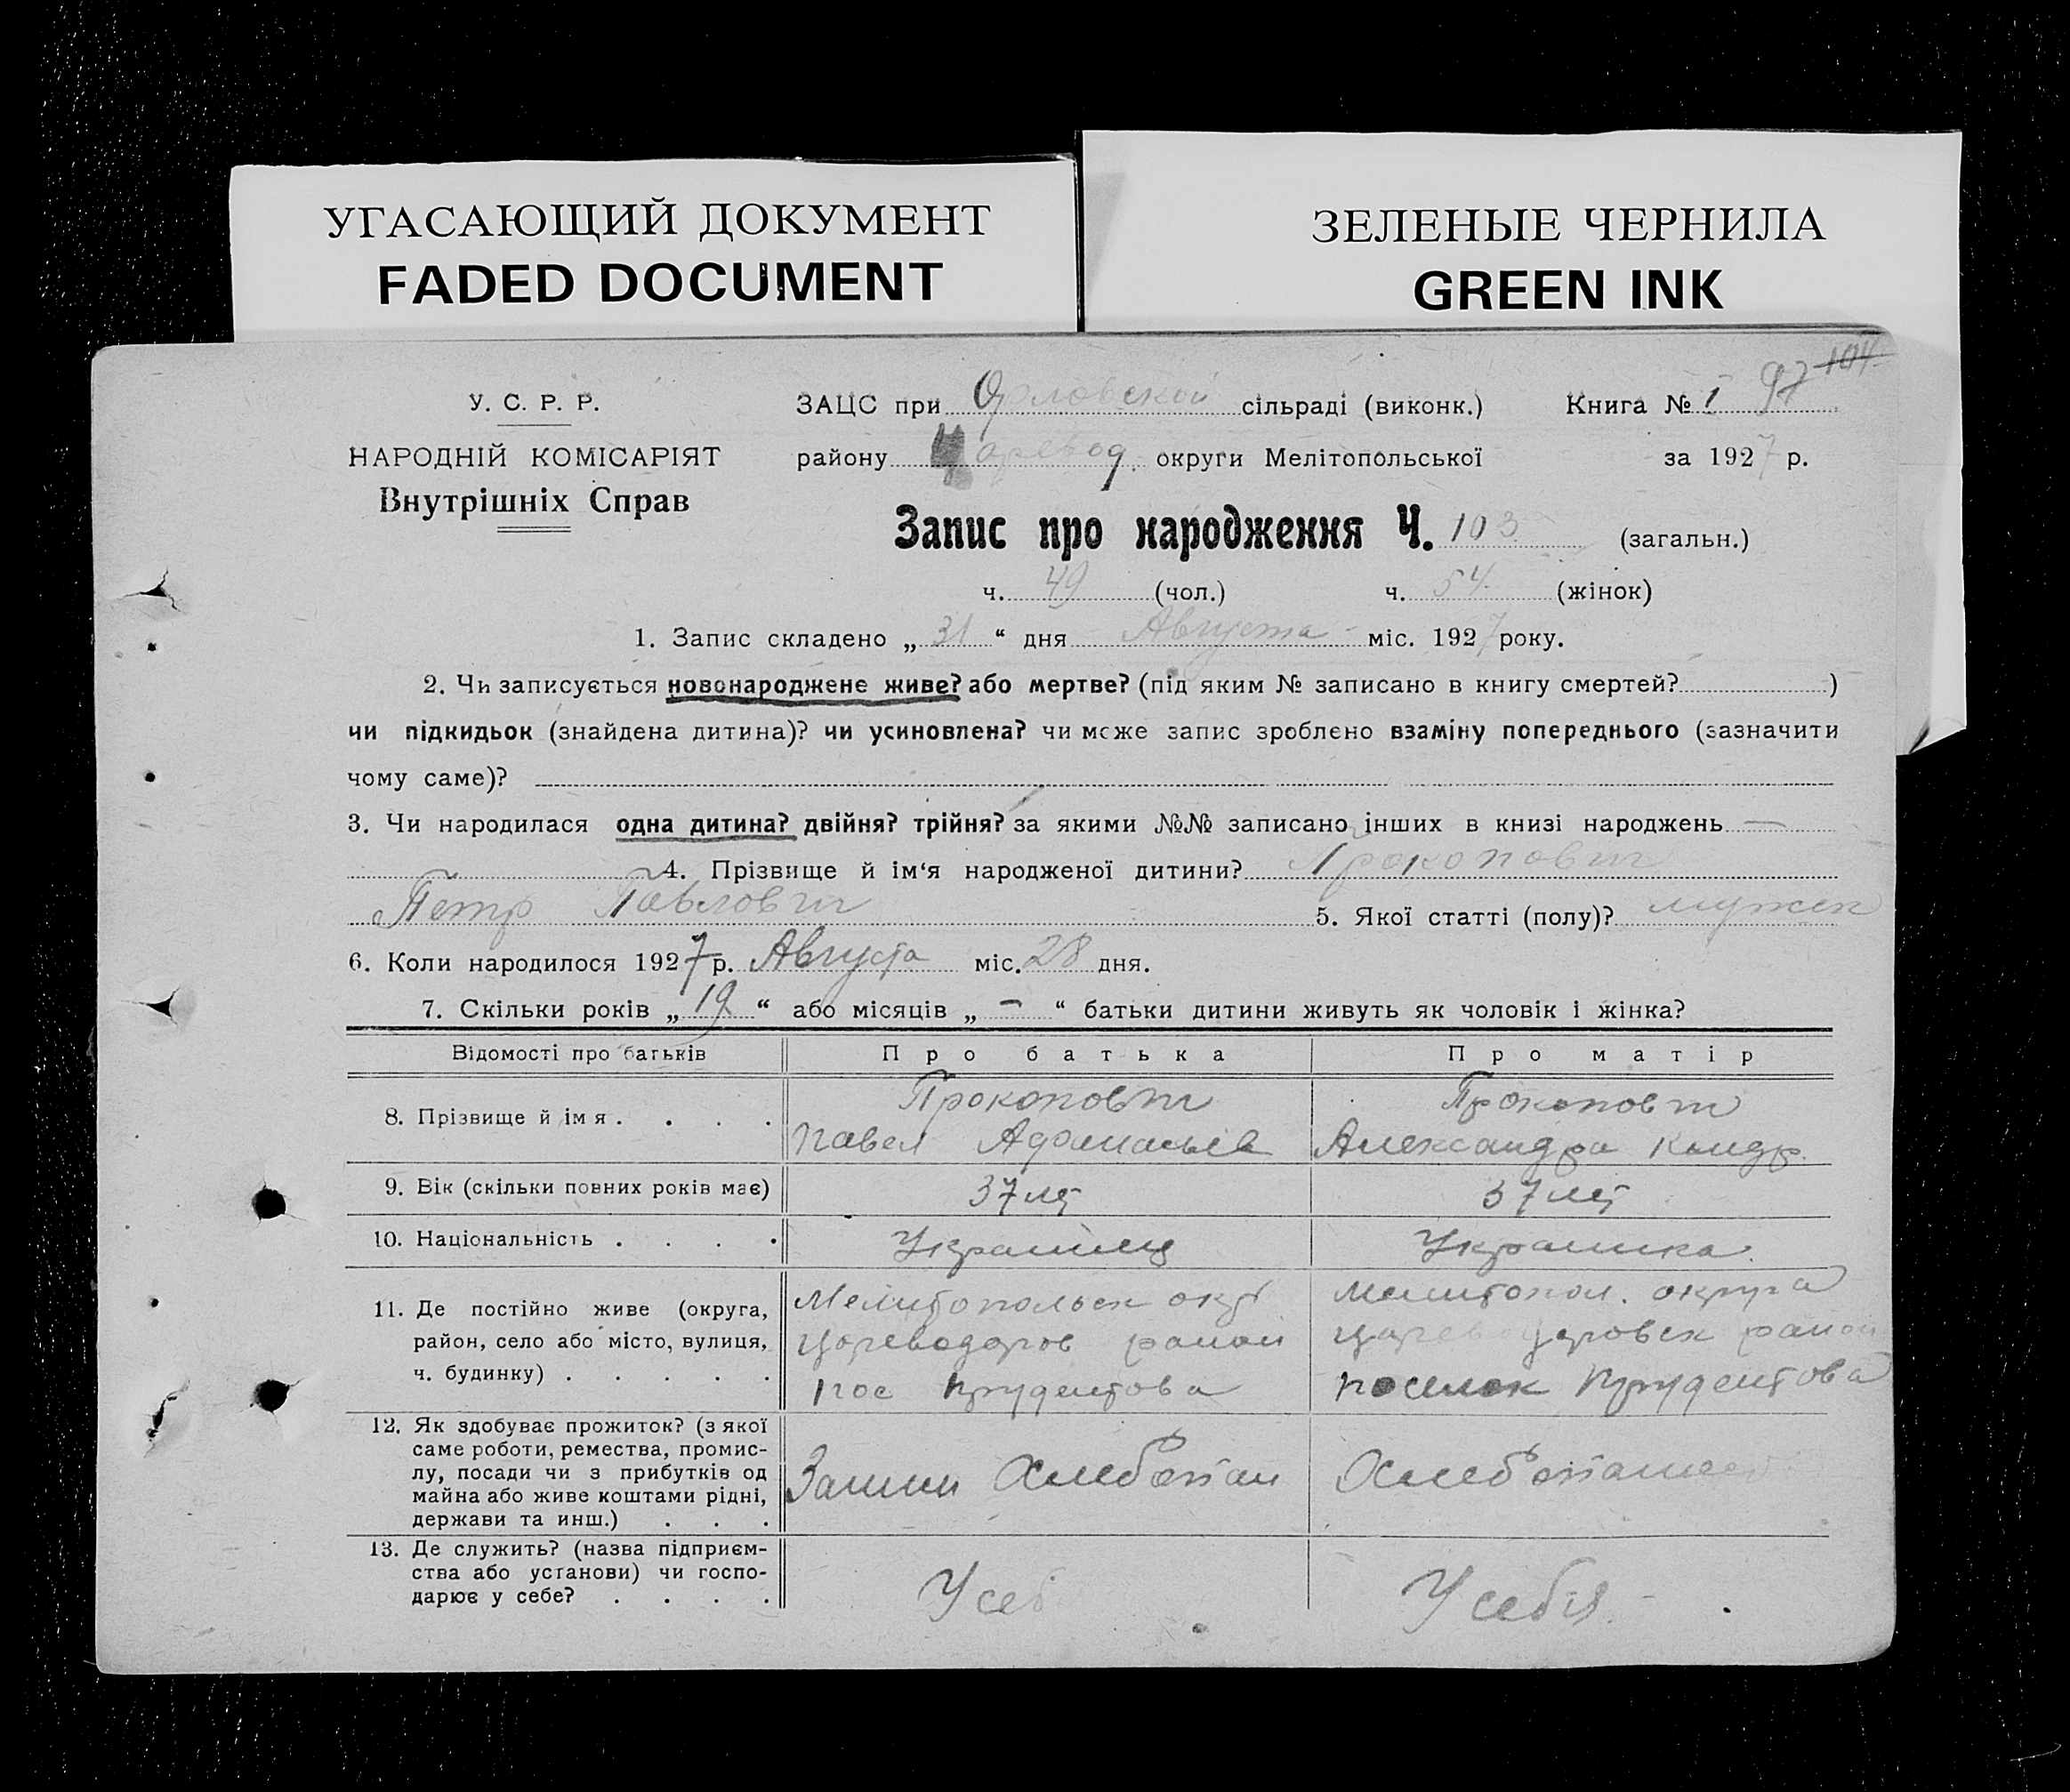 УГАСАЮЩИЙ ДОКУМЕНТ
FADED DOCUMENT
ЗЕЛЕНЫЕ ЧЕРНИЛА
GREEN INK
104
У. С. Р. Р.
НАРОДНІЙ КОМІСАРІЯТ
Внутрішніх Справ
ЗАЦС при Орловской сільраді (виконк.) Книга № 1 97
району Царевод. округи Мелітопольської за 1927 р.
Запис про народження Ч. 103 (загальн.)
ч. 49 (чол.) ч. 54 (жінок)
1. Запис складено „ 31 “ дня Августа міс. 1927 року.
2. Чи записується новонароджене живе? або мертве? (під яким № записано в книгу смертей? )
чи підкидьок (знайдена дитина)? чи усиновлена? чи може запис зроблено взаміну попереднього (зазначити
чому саме)?
3. Чи народилася одна дитина? двійня? трійня? за якими №№ записано інших в книзі народжень —
4. Прізвище й ім‘я народженої дитини? Прокопович
Петр Павлович 5. Якої статті (полу)? мужск
6. Коли народилося 1927 р. Августа міс. 28 дня.
7. Скільки років „ 19 “ або місяців „ — “ батьки дитини живуть як чоловік і жінка?
Відомості про батьків Про батька Про матір
8. Прізвище й ім я . . . . Прокопович Прокопович
Павел Афанасьев Александра Кондр.
9. Вік (скільки повних років має) 37 лет 37 лет
10. Національність . . . . Украинец Украинка.
11. Де постійно живе (округа, Мелитопольск окр Мелитопол. округа
район, село або місто, вулиця, Цареводаров район Цареводаровск район
ч. будинку) . . . . . пос Прудентова поселок Прудентова
12. Як здобуває прожиток? (з якої
саме роботи, ремества, промис-
лу, посади чи з прибутків од Хлебопаш Хлебопашес
майна або живе коштами рідні,
держави та инш.) . . .
13. Де служить? (назва підприєм-
ства або установи) чи госпо- У себ У себя
дарює у себе? . . . .